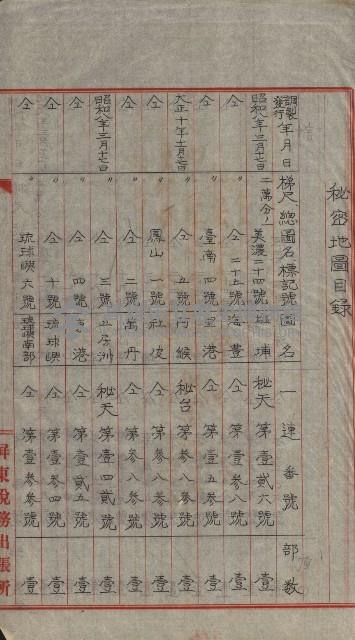 秘密地圖目錄
調製發行年月日 梯尺 總圖名 標記號 圖名 一連番號 部數
昭和八年三月十七日 二萬分ノ一 美濃二十四號 埔 秘天第壹貳六號 壹
仝 〃 仝 二十五號 海豊 仝 第壹參八號 壹
仝 〃 臺南 四號 里港 仝 第壹五參號 壹
大正十年十月十七日 〃 仝 五號 阿緱 秘台第參八參號 壹
仝 〃 鳳山 一號 社皮 仝 第參八參號 壹
仝 〃 仝 二號 萬丹 仝 第參八參號 壹
昭和八年三月十七日 〃 仝 三號 五房洲 秘天第壹四貳號 壹
仝 〃 仝 四號 東港 仝 第壹貳五號 壹
仝 〃 仝 十號 琉球嶼 仝 第壹參四號 壹
仝 〃 琉球嶼 六號 琉球嶼南部 仝 第壹參參號 壹
屏東稅務出張所